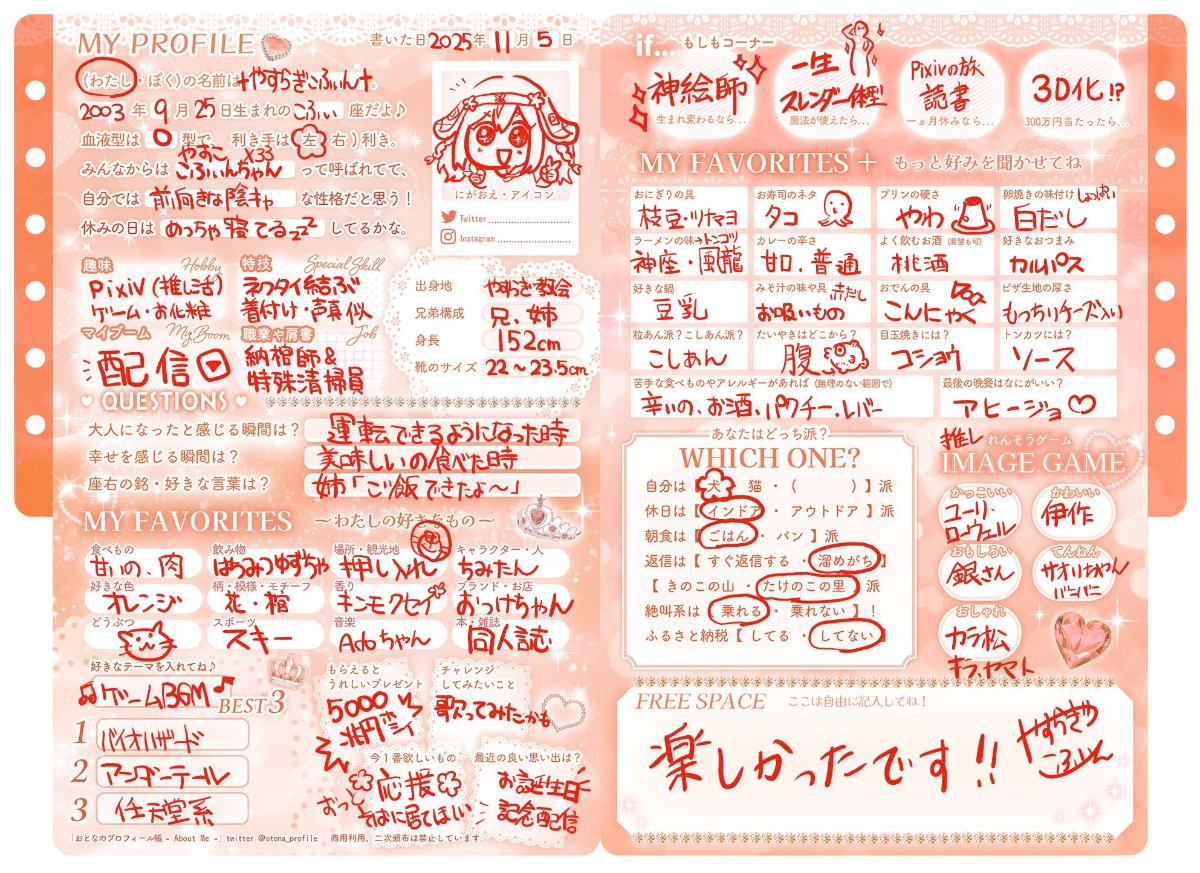 MY PROFILE
書いた日 2025年 11月 5日
(わたし・ぼく)の名前は†やすらぎこふぃん†。
2003年 9月 25日生まれの こふぃ 座だよ♪
血液型は O 型で、利き手は(左・右)利き。
みんなからは やおこ こふぃんちゃん x33 って呼ばれてて、
自分では 前向きな陰キャ な性格だと思う!
休みの日は めっちゃ寝てるzzz してるかな。
にがおえ・アイコン
Twitter
Instagram
趣味 Hobby
Pixiv (推し活)
ゲーム・お化粧
特技 Special Skill
ネクタイ結ぶ
着付け・声真似
マイブーム My Boom
配信
職業や肩書 Job
納棺師&
特殊清掃員
出身地 やすらぎ教会
兄弟構成 兄、姉
身長 152cm
靴のサイズ 22〜23.5cm
QUESTIONS
大人になったと感じる瞬間は? 運転できるようになった時
幸せを感じる瞬間は? 美味しいの食べた時
座右の銘・好きな言葉は? 姉「ご飯できたよ〜」
MY FAVORITES 〜わたしの好きなもの〜
食べもの 甘いの、肉
飲み物 はちみつゆずちゃ
場所・観光地 押し入れ
キャラクター・人 ちみたん
好きな色 オレンジ
柄・模様・モチーフ 花・棺
香り キンモクセイ
ブランド・お店 おっけちゃん
どうぶつ
スポーツ スキー
音楽 Adoちゃん
本・雑誌 同人誌
好きなテーマを入れてね♪
♫ゲームBGM♪ BEST3
1 バイオハザード
2 アンダーテール
3 任天堂系
もらえるとうれしいプレゼント
5000兆円
チャレンジしてみたいこと
歌ってみたかも
今1番欲しいもの
応援
ずっとそばに居てほしい
最近の良い思い出は?
お誕生日
記念配信
「おとなのプロフィール帳 - About Me -」twitter @otona_profile 商用利用、二次頒布は禁止しています。
if... もしもコーナー
神絵師
生まれ変わるなら...
一生スレンダー体型
魔法が使えたら...
Pixivの旅
読書
一ヵ月休みなら...
3D化!?
300万円当たったら...
MY FAVORITES + もっと好みを聞かせてね
おにぎりの具 枝豆・ツナマヨ
お寿司のネタ タコ
プリンの硬さ やわ
卵焼きの味付け しょっぱい 白だし
ラーメンの味→トンコツ 神座・風龍
カレーの辛さ 甘口、普通
よく飲むお酒(希望も可) 桃酒
好きなおつまみ カルパス
好きな鍋 豆乳
みそ汁の味や具 赤だし お吸いもの
おでんの具 こんにゃく
ピザ生地の厚さ もっちりチーズ入り
粒あん派?こしあん派? こしあん
たいやきはどこから? 腹
目玉焼きには? コショウ
トンカツには? ソース
苦手な食べものやアレルギーがあれば(無理のない範囲で) 辛いの、お酒、パクチー、レバー
最後の晩餐はなにがいい? アヒージョ♡
あなたはどっち派?
WHICH ONE?
自分は【 犬 ・ 猫 ・( )】派
休日は【 インドア ・ アウトドア 】派
朝食は【 ごはん ・ パン 】派
返信は【 すぐ返信する ・ 溜めがち 】
【 きのこの山 ・ たけのこの里 】派
絶叫系は【 乗れる ・ 乗れない 】!
ふるさと納税【 してる ・ してない 】
推し れんそうゲーム
IMAGE GAME
かっこいい
ユーリ・ローウェル
かわいい
伊作
おもしろい
銀さん
てんねん
サオリちゃん
バーバニー
おしゃれ
カラ松
キラ・ヤマト
FREE SPACE ここは自由に記入してね!
楽しかったです!!
やすらぎのこふぃん